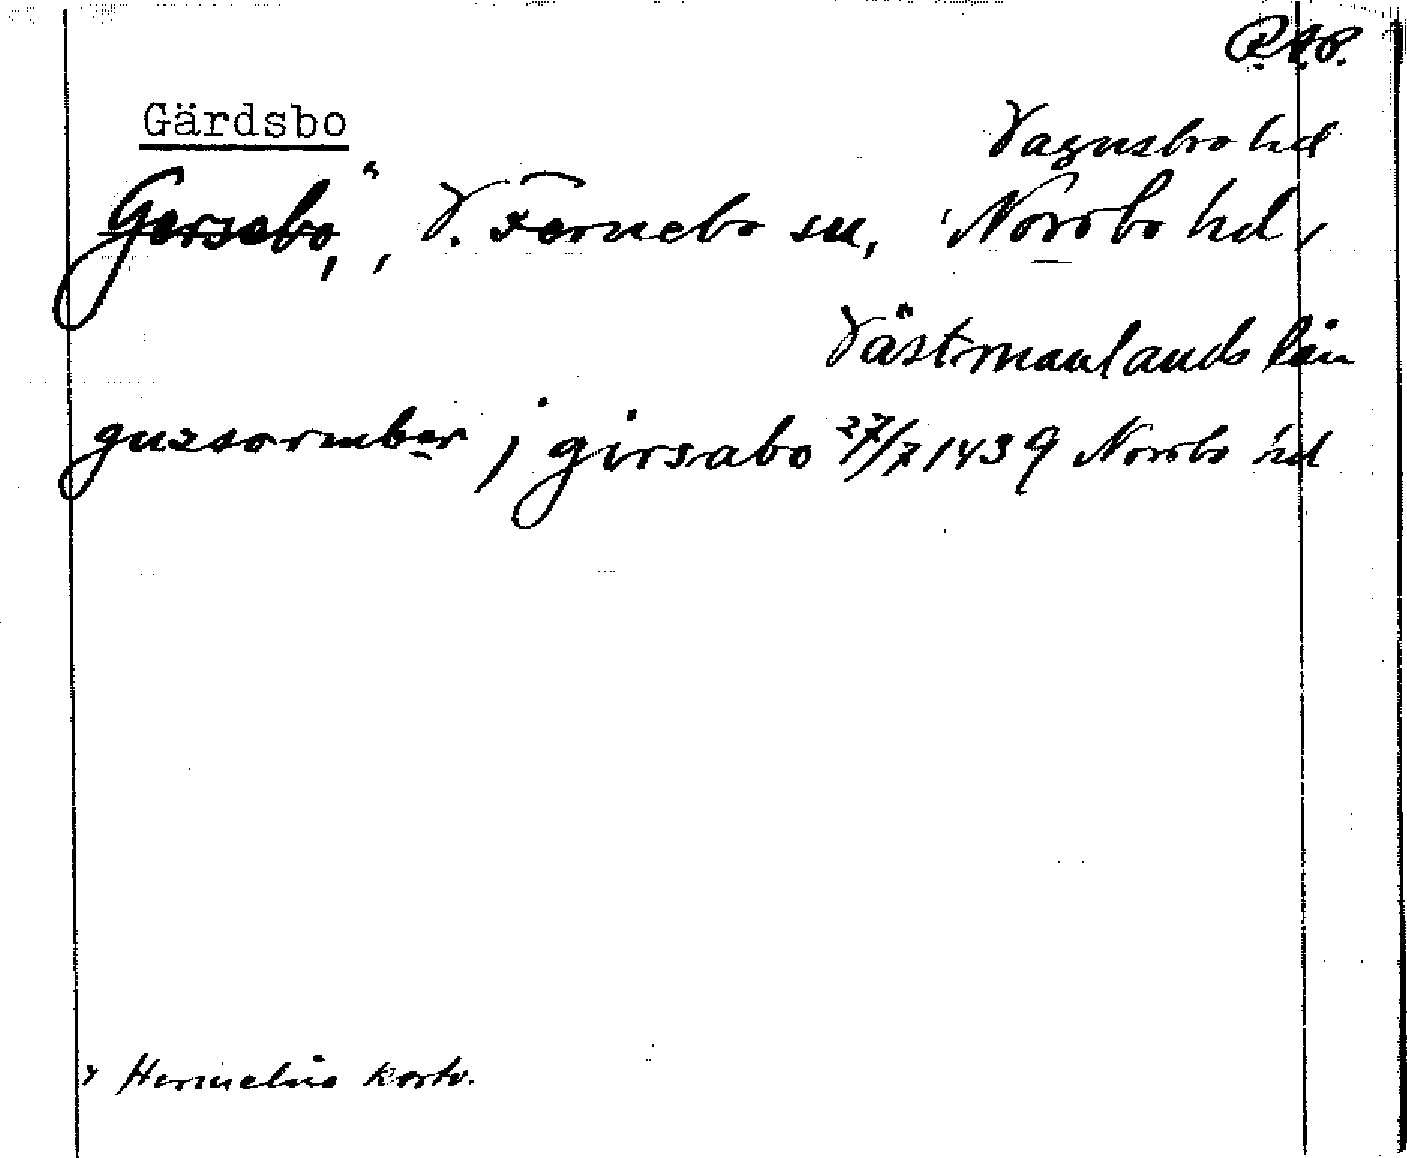 R.A.P.
Gärdsbo
Vagnsbro hd
Gersebo, V. Fernebo sn, Norrbo hd,
Västmanlands län
guzsormber j girsabo 27/7 1439 Norrbo hd
Hermelins kartv.